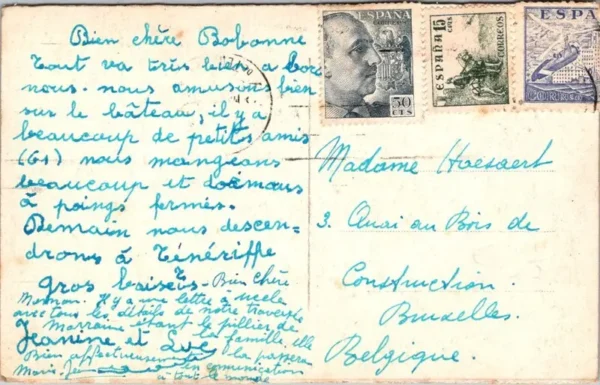 Bien chère Bobonne
Tout va très bien a bord
nous. nous amusons bien
sur le bâteau, il y a
beaucoup de petits amis
(61) nous mangeons
beaucoup et dormons
à poings fermés.
Demain nous descen-
drons à Ténériffe
gros baisers -
Jeanine et Luc
Bien chère
Maman. Il y a une lettre
avec tous les détails de notre traversée
Marraine étant le pillier de
la famille, elle
Bien affectueusement la passera
en communication
à tout le monde
ESPAÑA
CORREOS
50
CTS
ESPAÑA
15
CTS
CORREOS
ESPA
CORREO
Madame
3. Quai au Bois de
Construction.
Bruxelles.
Belgique.